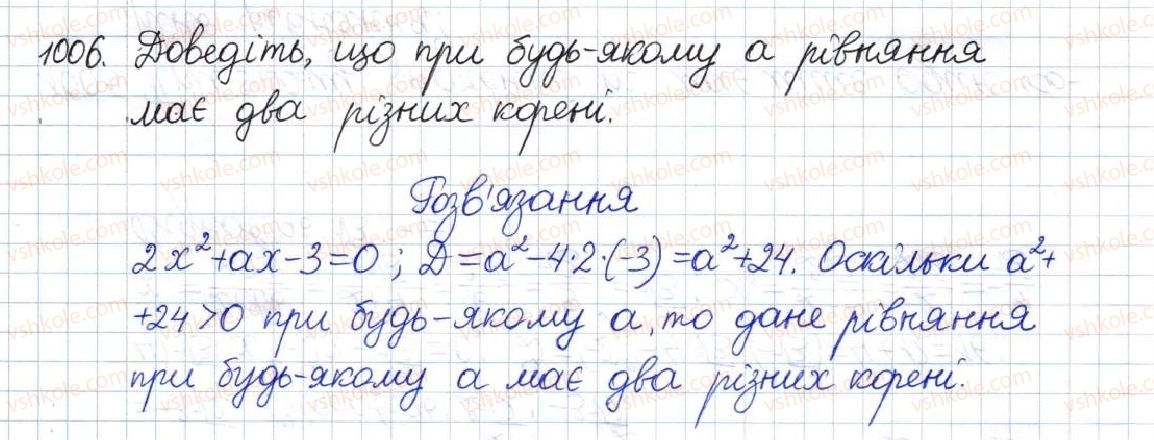 1006. Доведіть, що при будь-якому а рівняння
має два різних корені.
Розв'язання
2x²+ax-3=0; Д=a²-4·2·(-3)=a²+24. Оскільки a²+
+24>0 при будь-якому а, то дане рівняння
при будь-якому а має два різних корені.